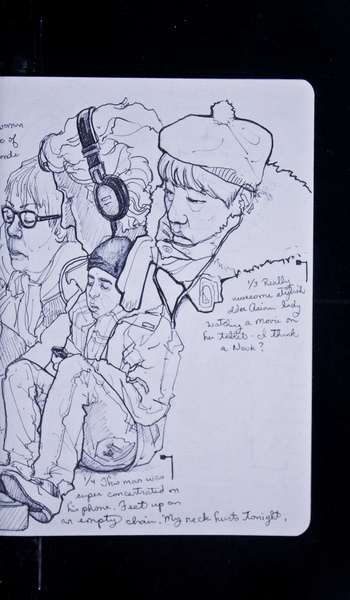 woman
of
1/3 Really
awesome styled
older Asian lady
watching a movie on
her tablet. I think
a Nook?
1/4 This man was
super concentrated on
his phone. Feet up on
an empty chair. My neck hurts tonight.